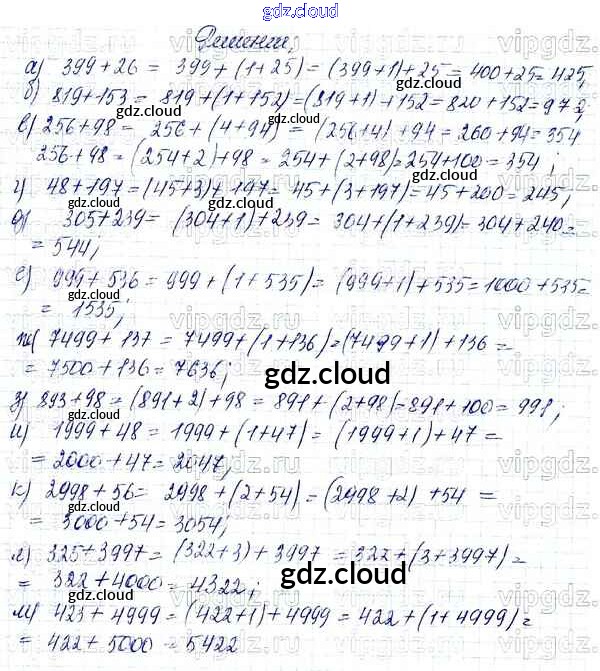 gdz.cloud
gdz.cloud
Решение;
а) 399+26 = 399+(1+25)=(399+1)+25=400+25=425;
б) 819+153 = 819+(1+152)=(819+1)+152=820+152=972;
в) 256+98 = 256+(4+94) = (256+4)+94=260+94=354
256+98=(254+2)+98= 254+(2+98)=254+100=354;
г) 48+197=(45+3)+197=45+(3+197)=45+200=245;
д) 305+239= (304+1)+239= 304+(1+239)=304+240=
= 544;
е) 999+536 = 999+(1+535)= (999+1)+535=1000+535=
= 1535;
ж) 7499+137 = 7499+(1+136)=(7499+1)+136 =
= 7500+136= 7636;
gdz.cloud
з) 893+98=(891+2)+98=891+(2+98)=891+100=991;
и) 1999+48 = 1999+(1+47)= (1999+1)+47 =
= 2000+47=2047;
к) 2998+56= 2998+(2+54)=(2998+2)+54 =
= 3000+54=3054;
л) 325+3997=(322+3)+3997 =322+(3+3997)=
= 322+4000= 4322;
gdz.cloud
м) 423+4999=(422+1)+4999=422+(1+4999)=
= 422+5000=5422
gdz.cloud